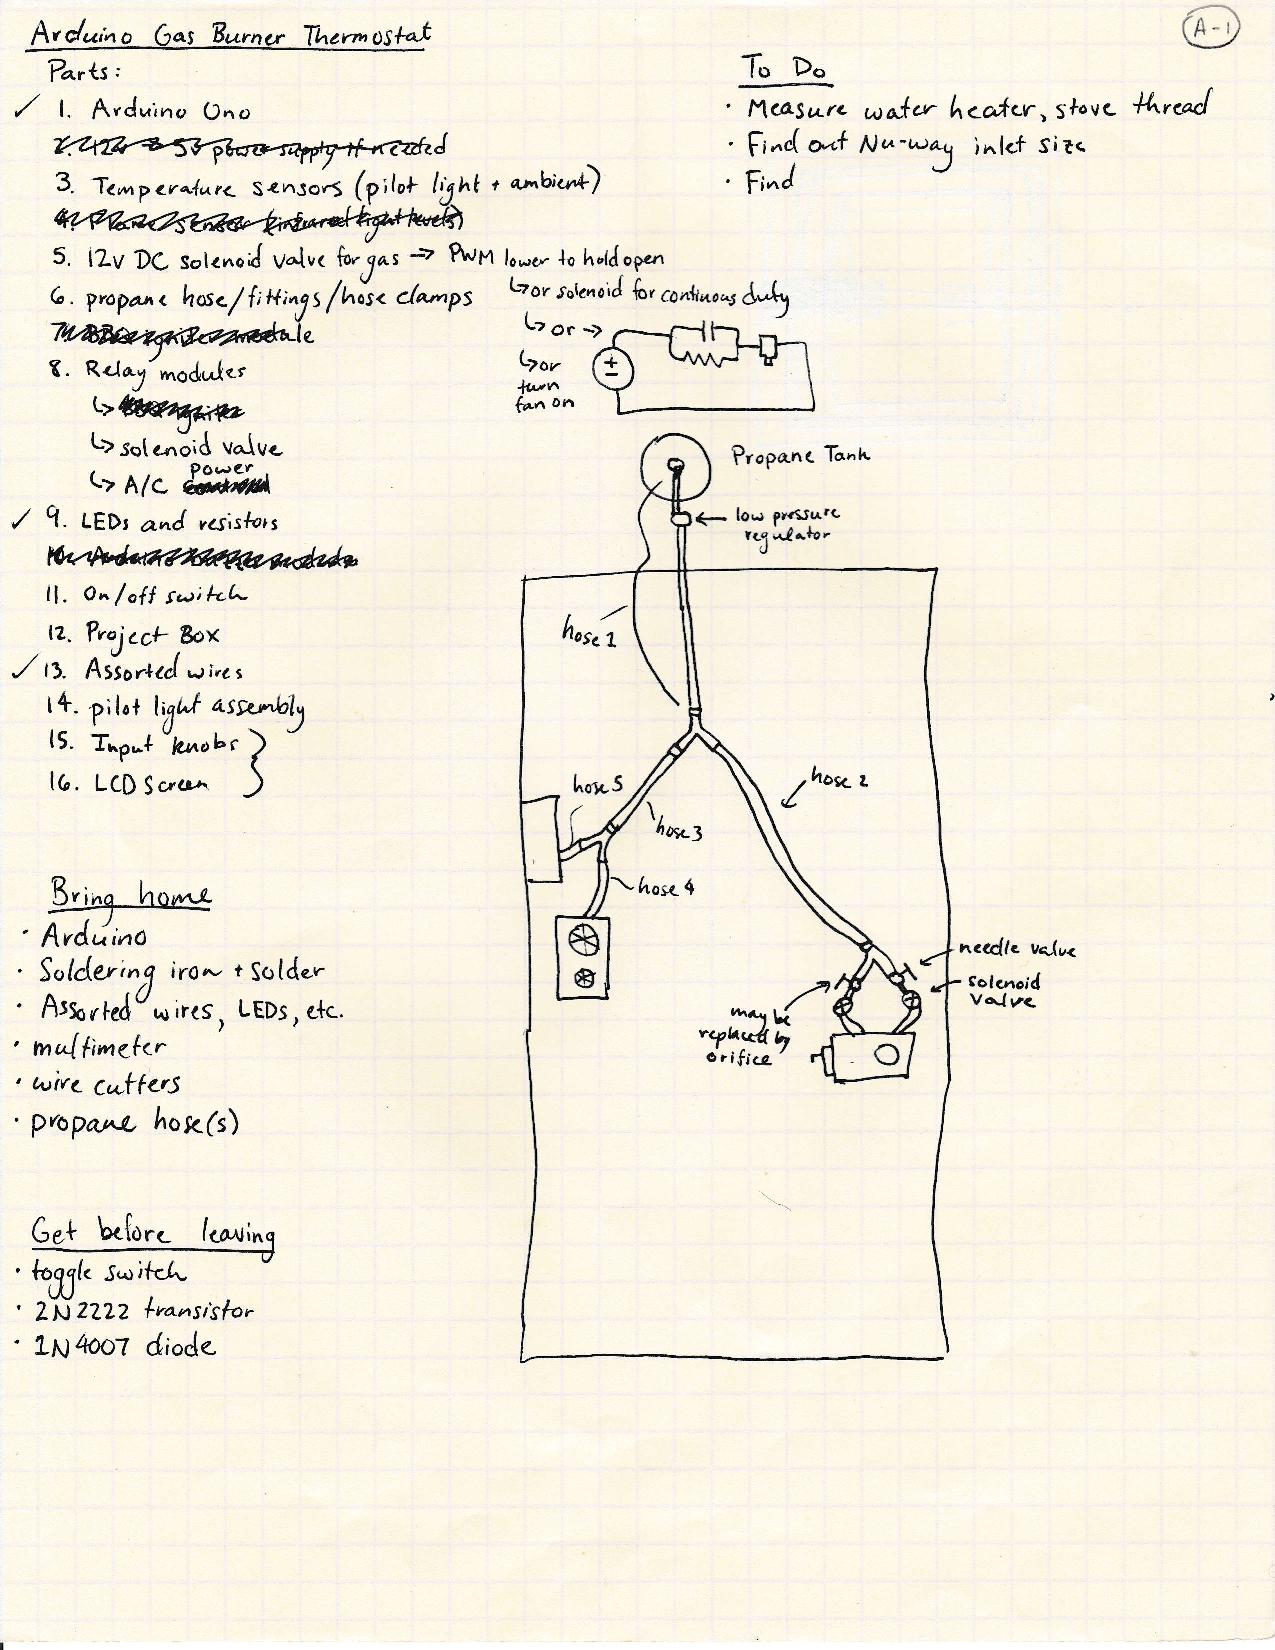 Arduino Gas Burner Thermostat
A-1
Parts:
✓ 1. Arduino Uno
2. 12v & 5v power supply if needed
3. Temperature sensors (pilot light + ambient)
4. Flame sensor (infrared light levels)
5. 12v DC solenoid valve for gas → PWM lower to hold open
6. propane hose/fittings/hose clamps
↳ or solenoid for continuous duty
↳ or →
↳ or
turn
fan on
+
-
7. BBQ igniter module
8. Relay modules
↳ BBQ igniter
↳ solenoid valve
power
↳ A/C
✓ 9. LEDs and resistors
10. Arduino module
11. On/off switch
12. Project Box
✓ 13. Assorted wires
14. pilot light assembly
15. Input knobs
16. LCD Screen
To Do
· Measure water heater, stove thread
· Find out Nu-way inlet size
· Find
Propane Tank
← low pressure
regulator
hose 1
hose 2
hose 5
hose 3
hose 4
needle valve
solenoid
valve
may be
replaced by
orifice
Bring home
· Arduino
· Soldering iron + solder
· Assorted wires, LEDs, etc.
· multimeter
· wire cutters
· propane hose(s)
Get before leaving
· toggle switch
· 2N2222 transistor
· 1N4007 diode